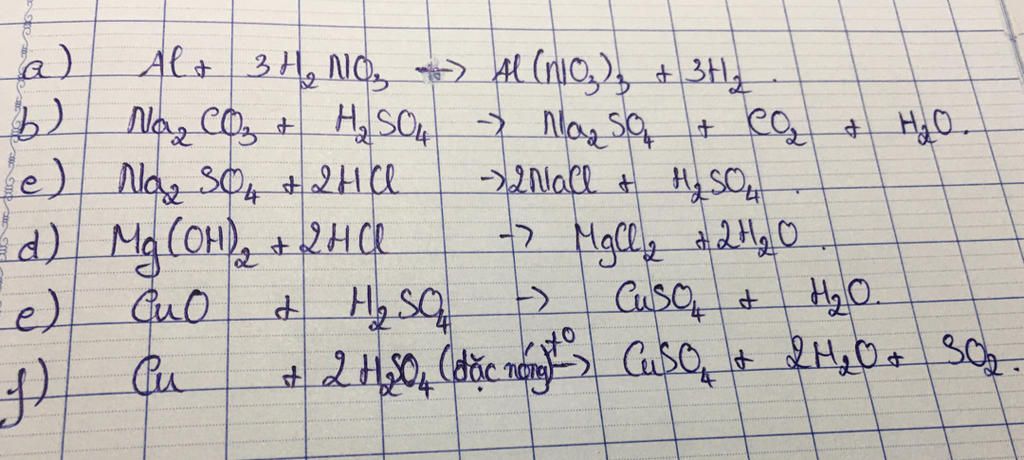 a) Al + 3H₂NO₃ → Al(NO₃)₃ + 3H₂.
b) Na₂CO₃ + H₂SO₄ → Na₂SO₄ + CO₂ + H₂O.
c) Na₂SO₄ + 2HCl → 2NaCl + H₂SO₄.
d) Mg(OH)₂ + 2HCl → MgCl₂ + 2H₂O.
e) CuO + H₂SO₄ → CuSO₄ + H₂O.
f) Cu + 2H₂SO₄ (đặc nóng) t⁰→ CuSO₄ + 2H₂O + SO₂.